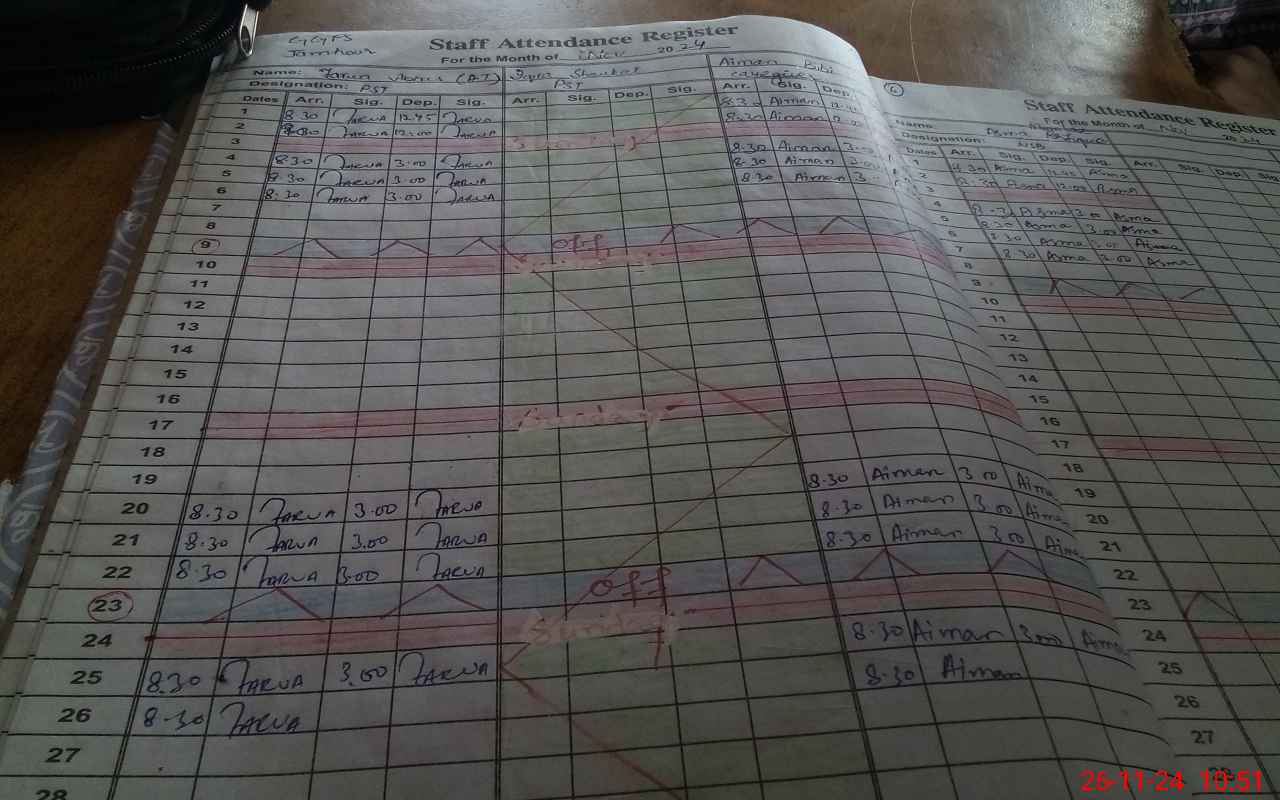 GGPS
Jamhoor
Staff Attendance Register
For the Month of Nov 2024
Name: Tarwa (A.T) Iqra Shoukat Aiman Bibi
Designation: PST PST caregiver
Dates Arr. Sig. Dep. Sig. Arr. Sig. Dep. Sig. Arr. Sig. Dep.
1 8.30 TARWA 12.45 TARWA 8.30 Aiman 12.45
2 8.30 TARWA 12:00 TARWA 8.30 Aiman 12.00
3 Sunday
4 8.30 TARWA 3.00 TARWA 8.30 Aiman 3.00
5 8.30 TARWA 3.00 TARWA 8.30 Aiman 3.00
6 8.30 TARWA 3.00 TARWA 8.30 Aiman 3
7
8
9 off
10 Sunday
11
12
13
14
15
16
17 Sunday
18
19
20 8.30 TARWA 3.00 TARWA 8.30 Aiman 3.00 Aiman
21 8.30 TARWA 3.00 TARWA 8.30 Aiman 3.00 Aiman
22 8.30 TARWA 3.00 TARWA 8.30 Aiman 3.00 Aiman
23 off
24 Sunday
25 8.30 TARWA 3.00 TARWA 8.30 Aiman 3.00 Aiman
26 8.30 TARWA 8.30 Aiman
27
28
6
Staff Attendance Register
For the Month of Nov 2024
Name Asma Rafique
Designation:
Dates Arr. Sig. Dep. Sig. Arr. Sig. Dep. Sig.
1 8.30 Asma 12.45 Asma
2 8.30 Asma 12.00 Asma
3
4 8.30 Asma 3.00 Asma
5 8.30 Asma 3.00 Asma
6 8.30 Asma 3.00 Asma
7 8.30 Asma 3.00 Asma
8
9
10
11
12
13
14
15
16
17
18
19
20
21
22
23
24
25
26
27
28
26-11-24 10:51